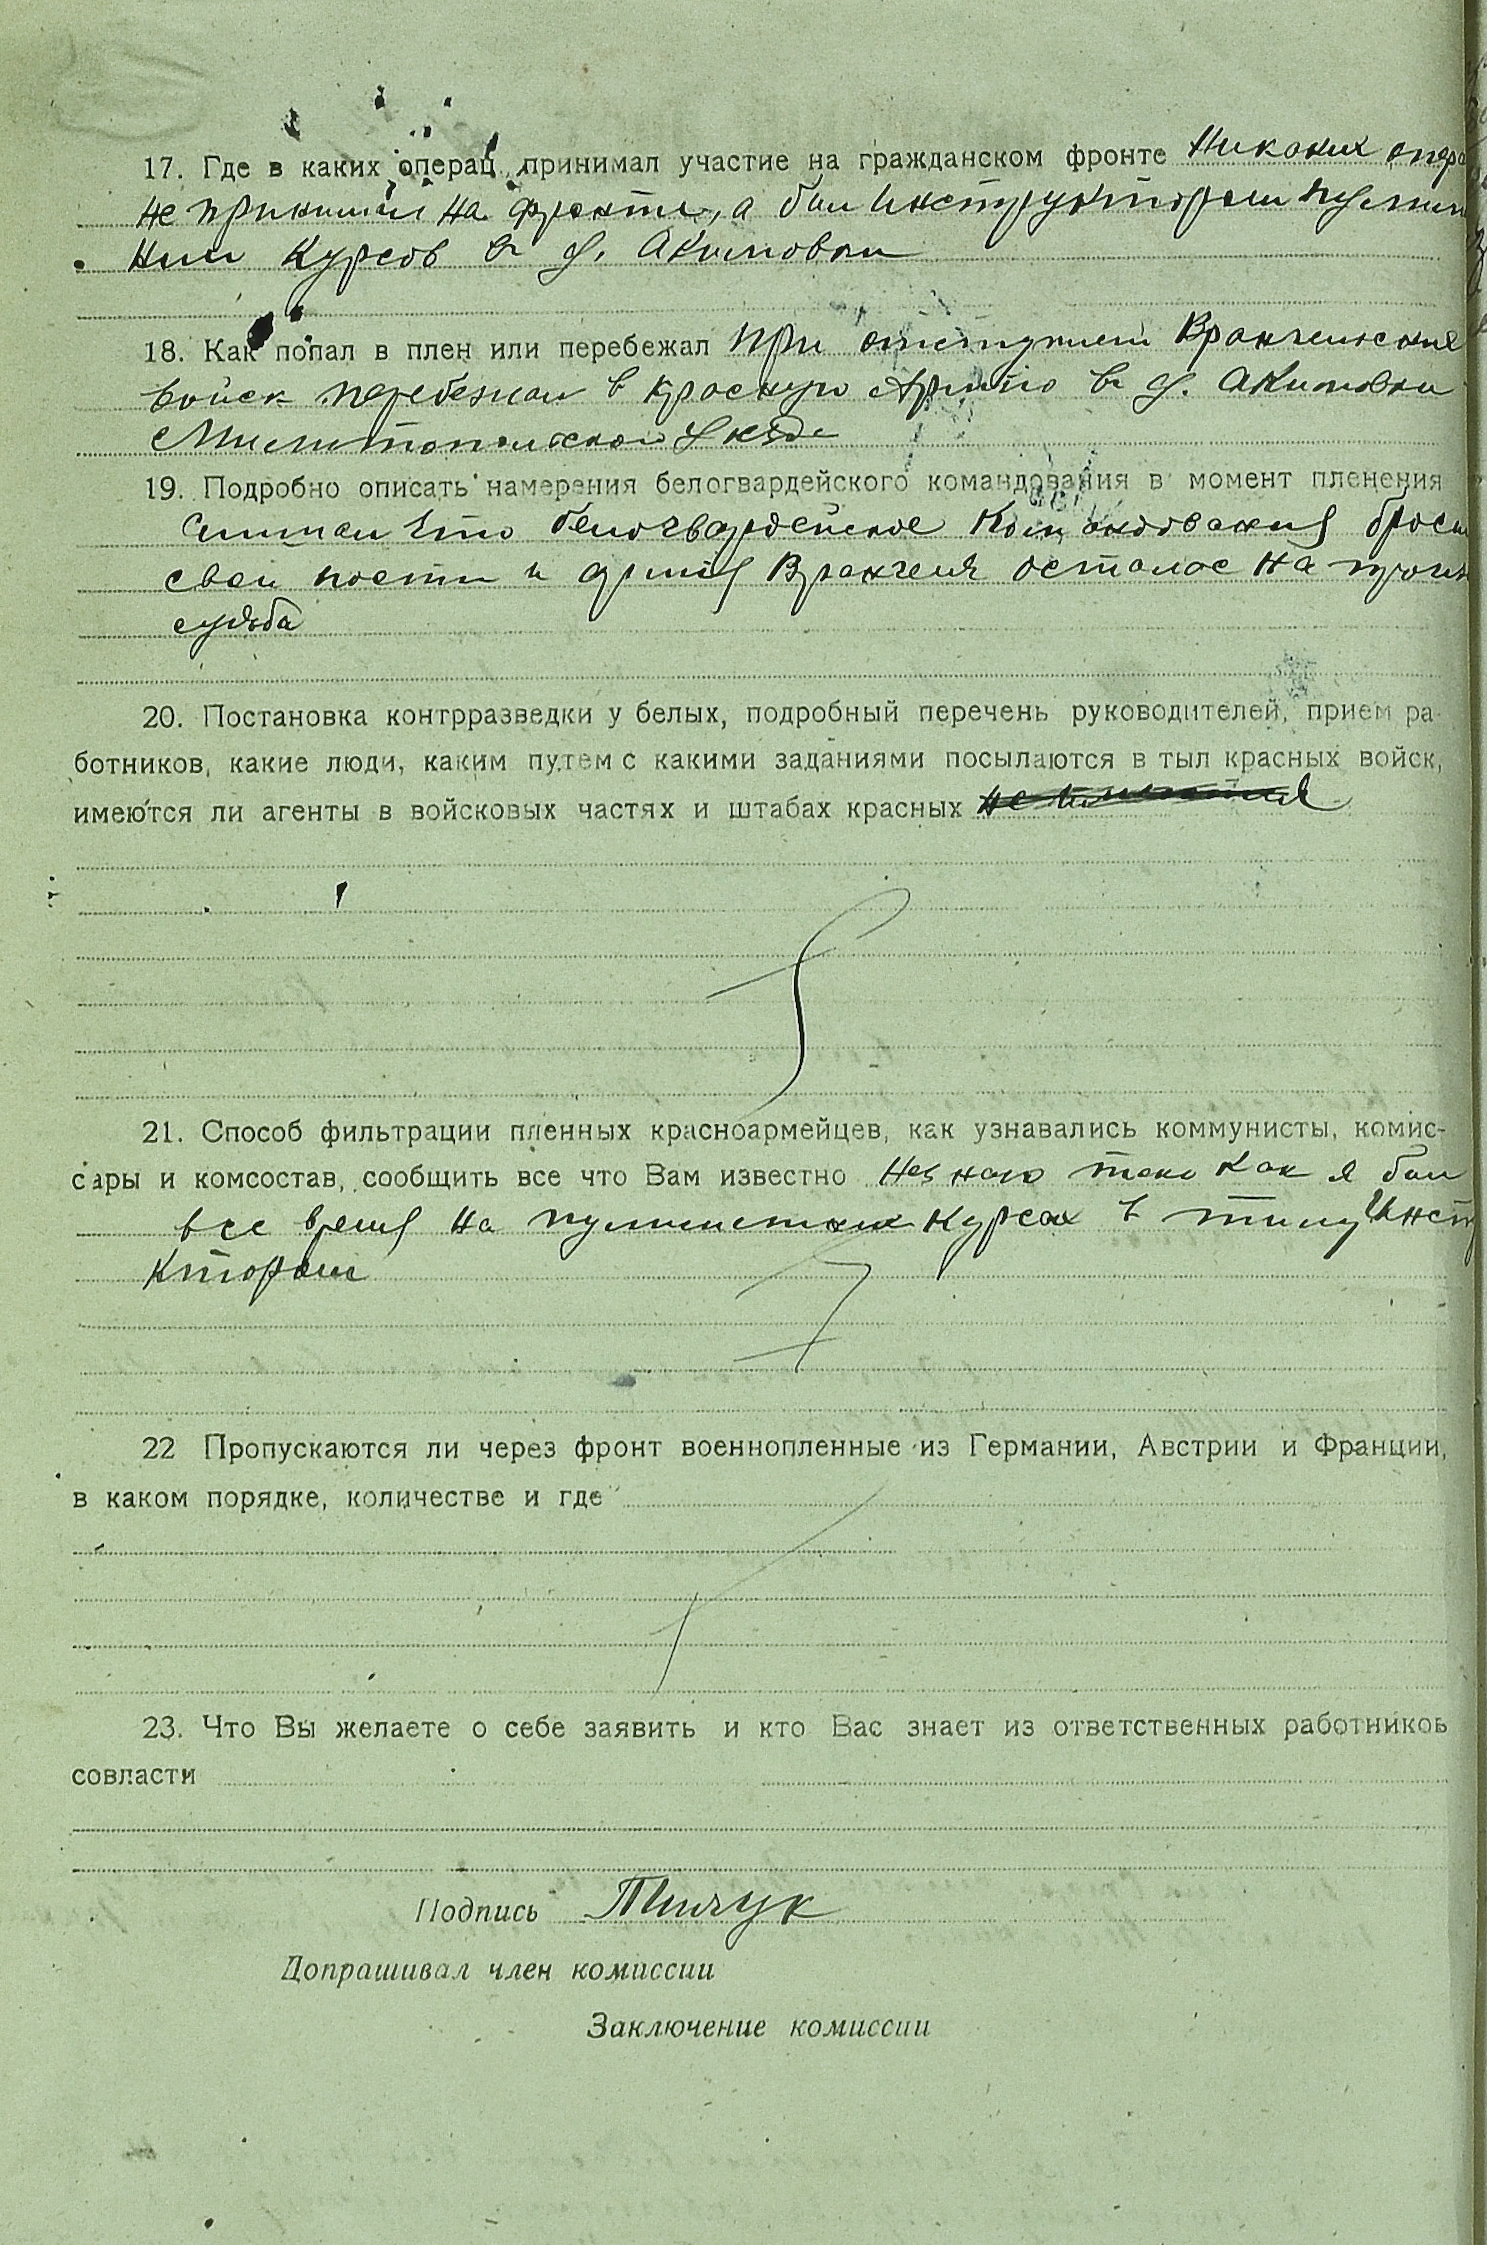 17. Где в каких операц. принимал участие на гражданском фронте Никоких опера
не принимал на фронте, а бил Инструктором пулемет
ним Курсов в д. Акимовки
18. Как попал в плен или перебежал При отступлени Вранчельских
войск перебежал в красную Армию в д. Акимовки
Мелитопольской уезде
19. Подробно описать намерения белогвардейского командования в момент пленения
Считаю Што белогвардейское Командования броси
свои пости и армия Вранчеля осталос на
судьба
20. Постановка контрразведки у белых, подробный перечень руководителей, прием ра-
ботников, какие люди, каким путем с какими заданиями посылаются в тыл красных войск,
имеются ли агенты в войсковых частях и штабах красных
21. Способ фильтрации пленных красноармейцев, как узнавались коммунисты, комис-
сары и комсостав, сообщить все что Вам известно Незнаю так как я бил
все время на пулеметних Курсах в тилу Инстр
ктором
22 Пропускаются ли через фронт военнопленные из Германии, Австрии и Франции,
в каком порядке, количестве и где
23. Что Вы желаете о себе заявить и кто Вас знает из ответственных работников
совласти
Подпись Тимчук
Допрашивал член комиссии
Заключение комиссии